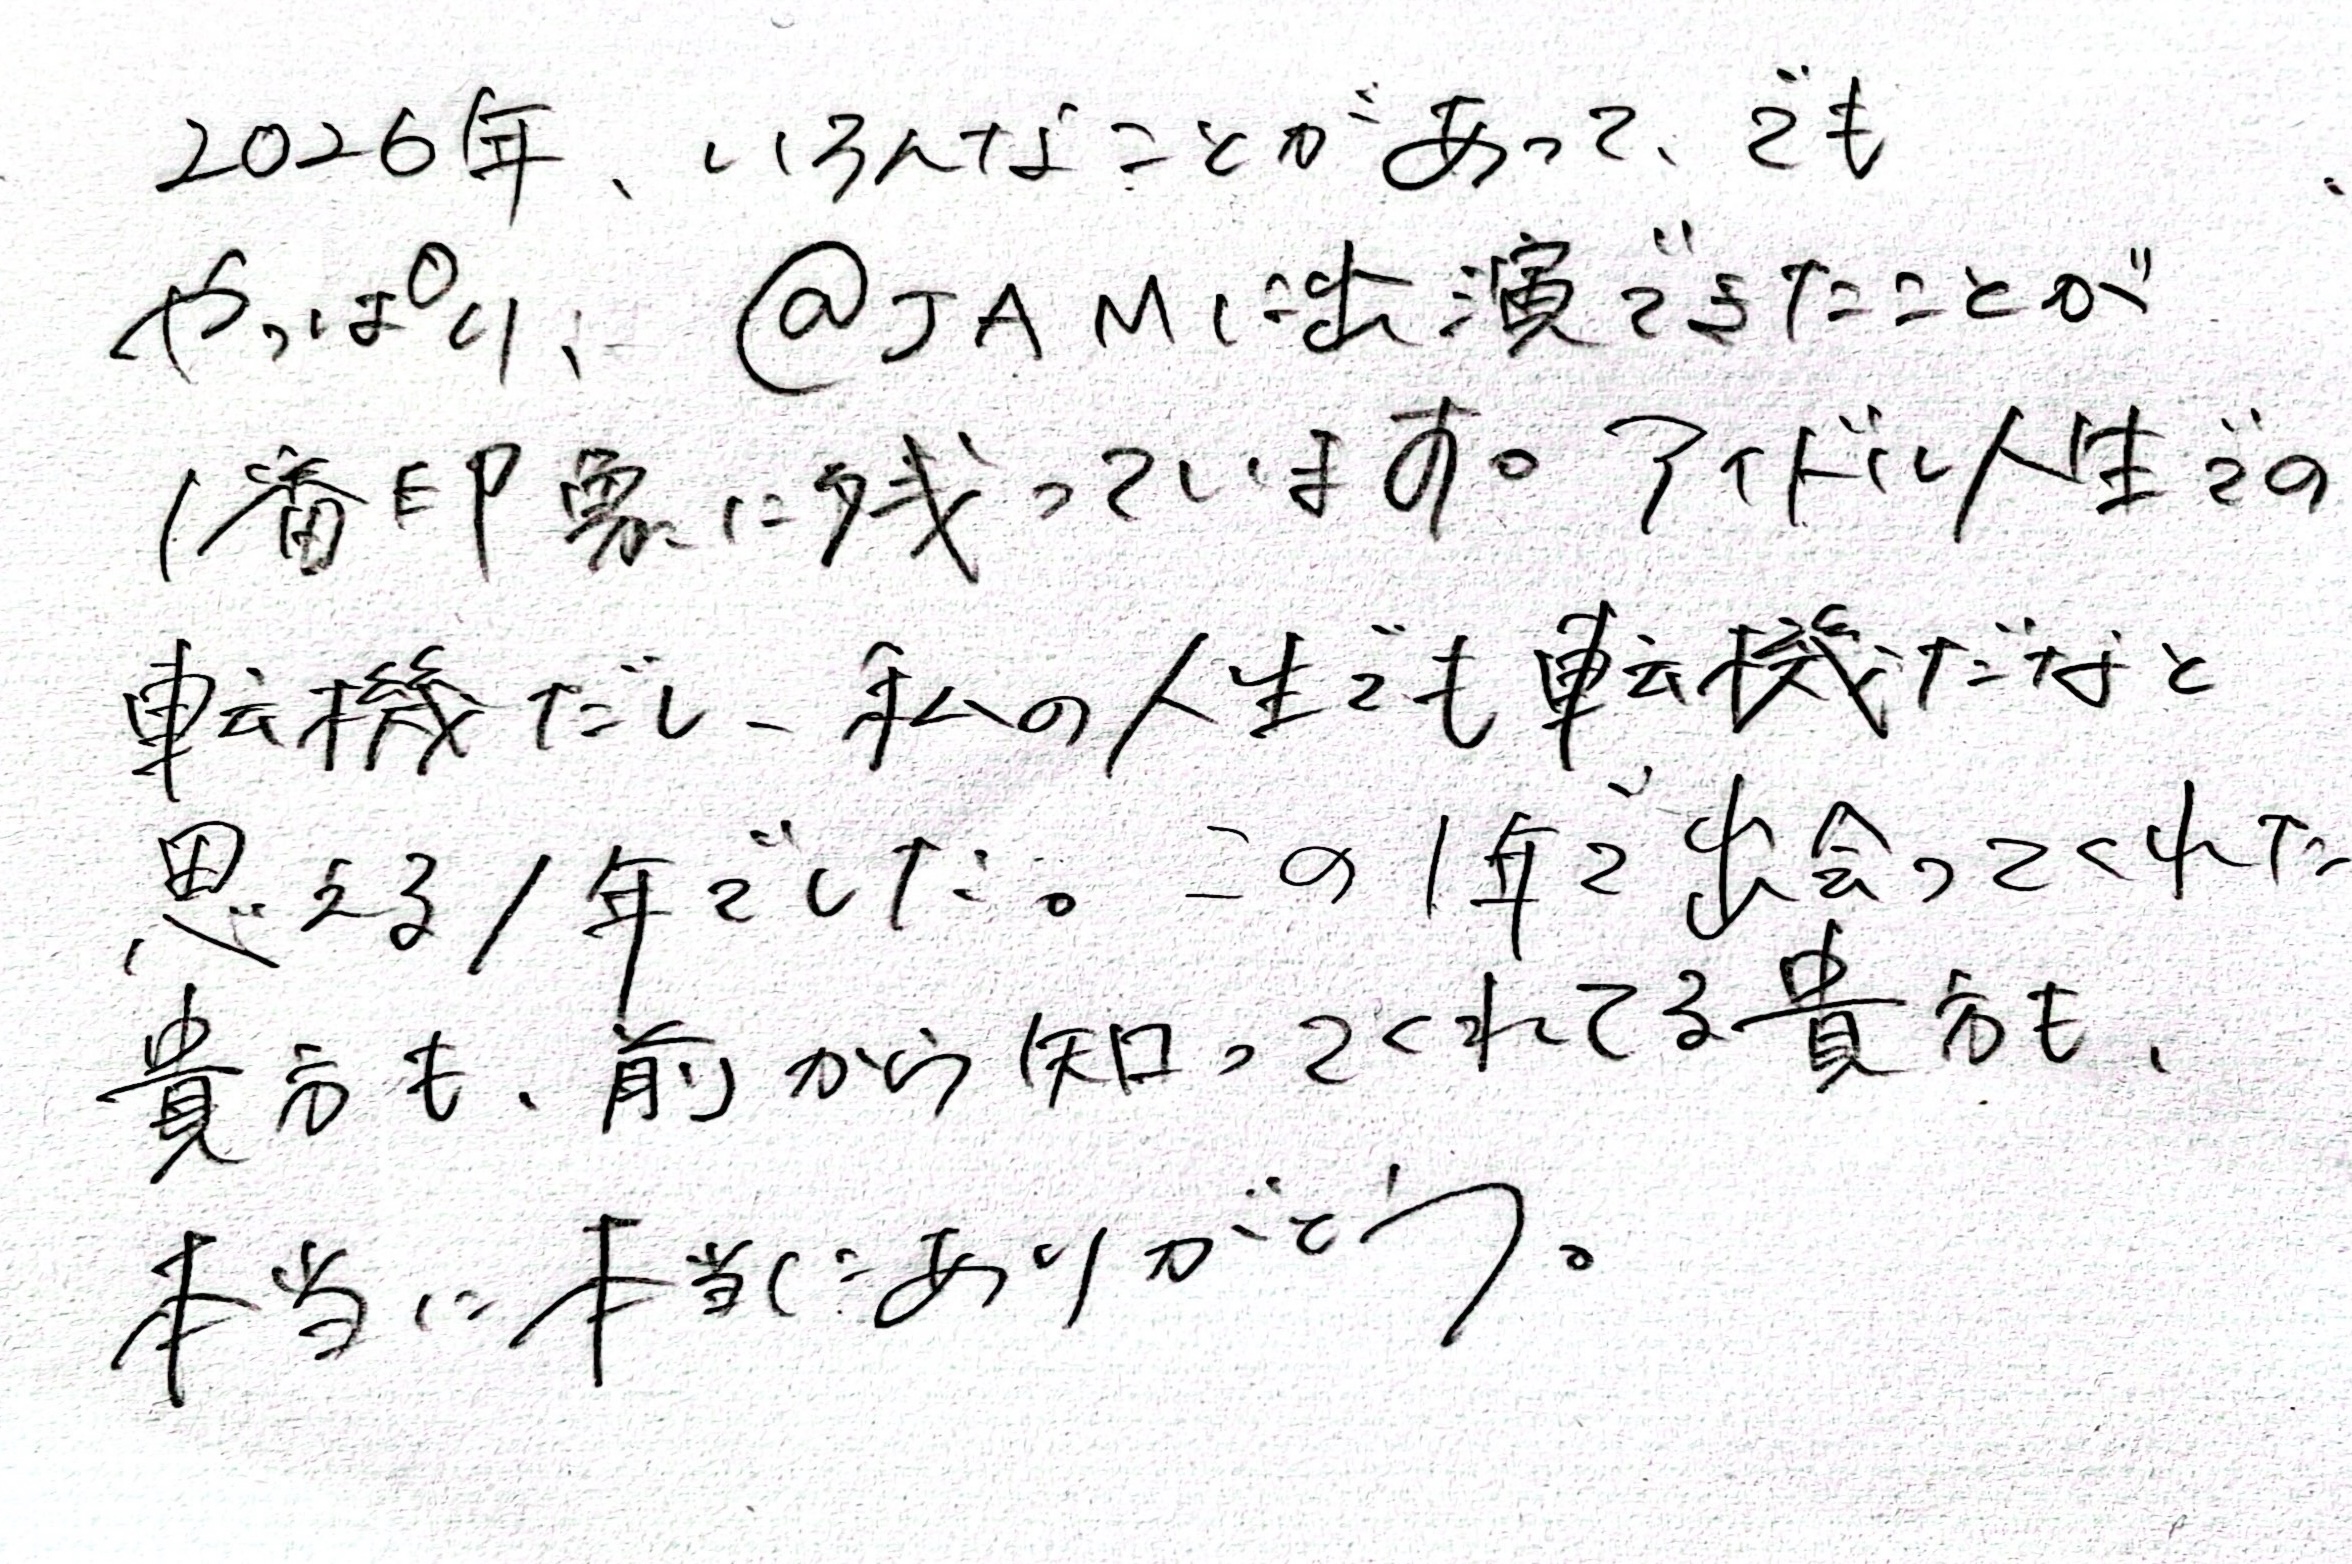 2026年、いろんなことがあって、でも
やっぱり、@JAMに出演できたことが
1番印象に残っています。アイドル人生での
転機だし、私の人生でも転機だなと
思える1年でした。この1年で出会ってくれた
貴方も、前から知ってくれてる貴方も、
本当に本当にありがとう。